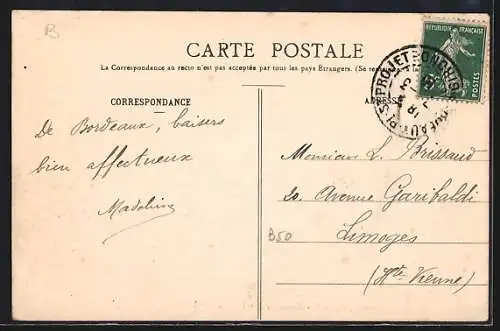 B
CARTE POSTALE
La Correspondance au recto n'est pas acceptée par tous les pays Étrangers. (Se rense
RÉPUBLIQUE FRANÇAISE
POSTES
CORRESPONDANCE
ADRESSE
De Bordeaux, baisers
bien affectueux
Madeleine
Monsieur L. Brissaud
20. Avenue Garibaldi
B50
Limoges
(Hte. Vienne)